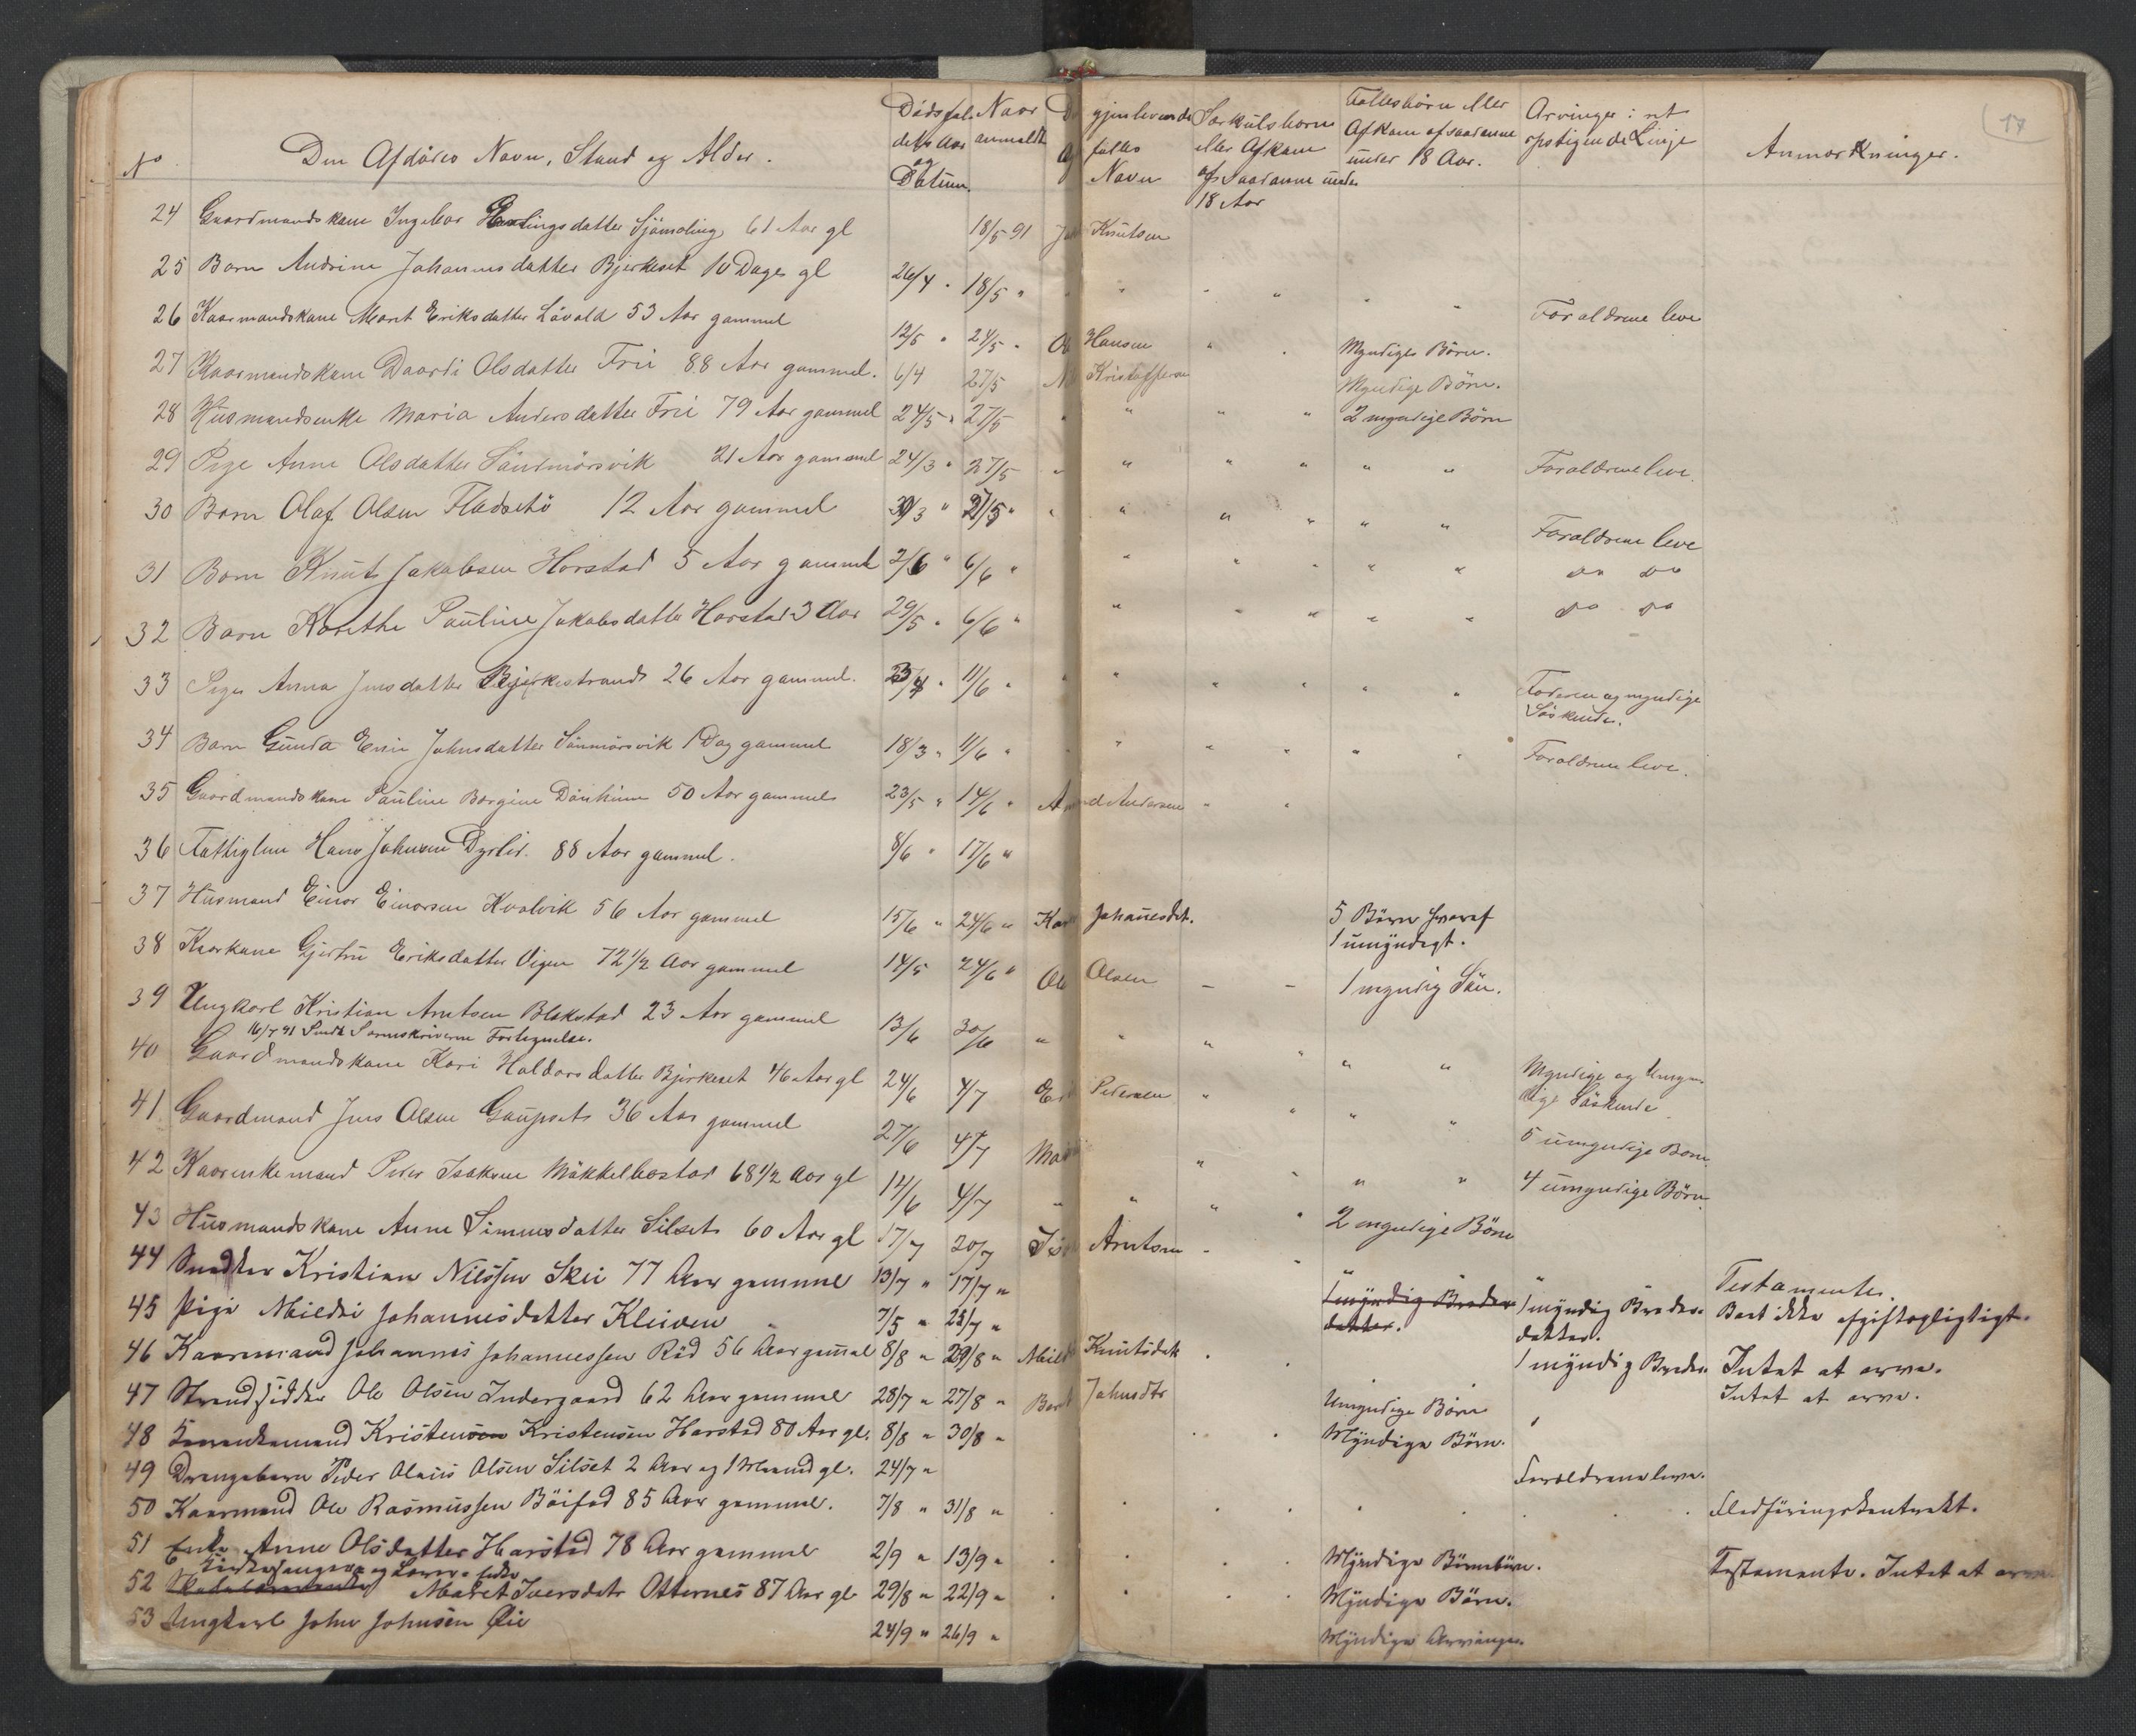 17
No Den Afdödes Navn, Stand og Alder. Dödsfaldets Aar og Datum. Naar anmeldt gjenlevende fælles Navn Særkulsbörn eller Afkom af saadanne under 18 Aar Fællesbörn eller Afkom af saadanne under 18 Aar. Arvinger i ret opstigende Linje Anmærkninger.
24 Gaardmandskone Ingebor Erlingsdatter Sjömoling 61 Aar gl 18/5 91 Knutsen
25 Barn Andrine Johannesdatter Bjerkeset 10 Dage gl 26/4 " 18/5 " Forældrene leve
26 Kaarmandskone Marit Eriksdatter Lövold 53 Aar gammel 12/5 " 24/5 " Ole Hansen Myndige Börn.
27 Kaarmandskone Daardi Olsdatter Frii 88 Aar gammel. 6/4 27/5 Kristoffersen Myndige Börn.
28 Husmandsenke Maria Andersdatter Frii 79 Aar gammel 24/5 " 27/5 " 2 myndige Börn
29 Pige Anne Olsdatter Sandmörsvik 21 Aar gammel 24/3 " 27/5 Forældrene leve.
30 Barn Olaf Olsen Fladsetö 12 Aar gammel 30/3 " 27/5 " Forældrene leve
31 Barn Knut Jakobsen Horstad 5 Aar gammel 2/6 " 6/6 " do do
32 Barn Korethe Pauline Jakobsdatter Harstad 3 Aar 29/5 " 6/6 " do do
33 Pige Anna Jensdatter Bjerkestrand 26 Aar gammel. 23/4 " 11/6 " Faderen og myndige Söskende.
34 Barn Gunda Johnsdatter Sanmörsvik 1 Dag gammel 18/3 " 11/6 " Forældrene leve.
35 Gaardmandskone Pauline Borgine Dönheim 50 Aar gammel 23/5 " 14/6 " Andersen
36 Fattiglem Hans Johnsen Dyrlid. 88 Aar gammel. 8/6 " 17/6 "
37 Husmand Einor Einorsen Kvalvik 56 Aar gammel 15/6 " 24/6 " Kari Johanesdat. 5 Börn hvoraf 1 umyndigt.
38 Kaarkone Gjertru Eriksdatter Vigen 72 1/2 Aar gammel 14/5 24/6 " Ole Olsen 1 myndig Sön.
39 Ungkarl Kristian Arntsen Blekstad 23 Aar gammel 13/6 30/6 " Myndige og Umyndige Söskende
16/7 91 Sendt Sorenskriveren Fortegnelse.
40 Gaardmandskone Kari Haldorsdatter Bjerkeset 46 Aar gl 24/6 4/7 Pedersen 5 umyndige Born.
41 Gaardmand Jens Olsen Gaupset 36 Aar gammel 27/6 4/7 4 umyndige Börn.
42 Kaarenkemand Peder Isaksen Mökkelbostad 68 1/2 Aar gl 14/6 4/7 2 myndige Börn
43 Husmandskone Anne Simensdatter Silset 60 Aar gl 17/7 20/7 Arntsen
44 Kristian Nilssen Skei 77 Aar gammel 13/7 " 17/7 " Testamente.
45 Pige Mildri Johannesdatter Kleiven 7/5 " 22/7 " 1 myndig Broderdatter. 1 myndig Broderdatter. Boet ikke afgiftspligtigt.
46 Kaarmand Johannes Johannessen Röd 56 Aar gammel 8/8 " 29/8 " Mildri Knutsdat 1 myndig Broder Intet at arve.
47 Strandsidder Ole Olsen Indergaard 62 Aar gammel 28/7 " 27/8 " Berit Johnsdtr Umyndige Börn Intet at arve.
48 Kaarenkemand Kristensen Kristensen Harstad 80 Aar gl. 8/8 " 30/8 " Myndige Börn.
49 Drengebarn Peder Olaus Olsen Silset 2 Aar og 1 Maaned gl. 24/7 " Forældrene leve.
50 Kaarmand Ole Rasmussen Böifod 85 Aar gammel. 7/8 " 31/8 " Fledföringskontrakt.
51 Enke Anne Olsdatter Harstad 78 Aar gammel 2/9 " 13/9 " Myndige Börnebörn. Testamente. Intet at arve
Kirkesanger og Lærer Enke
52 Maret Iversdatr Otternes 87 Aar gl 29/8 " 22/9 " Myndige Börn.
53 Ungkarl John Johnsen Öie 24/9 " 26/9 " Myndige Arvinger.